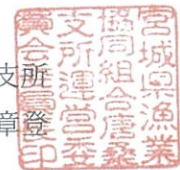 支所
章登
宮城県漁業
協同組合唐桑
支所運営委
員会
印